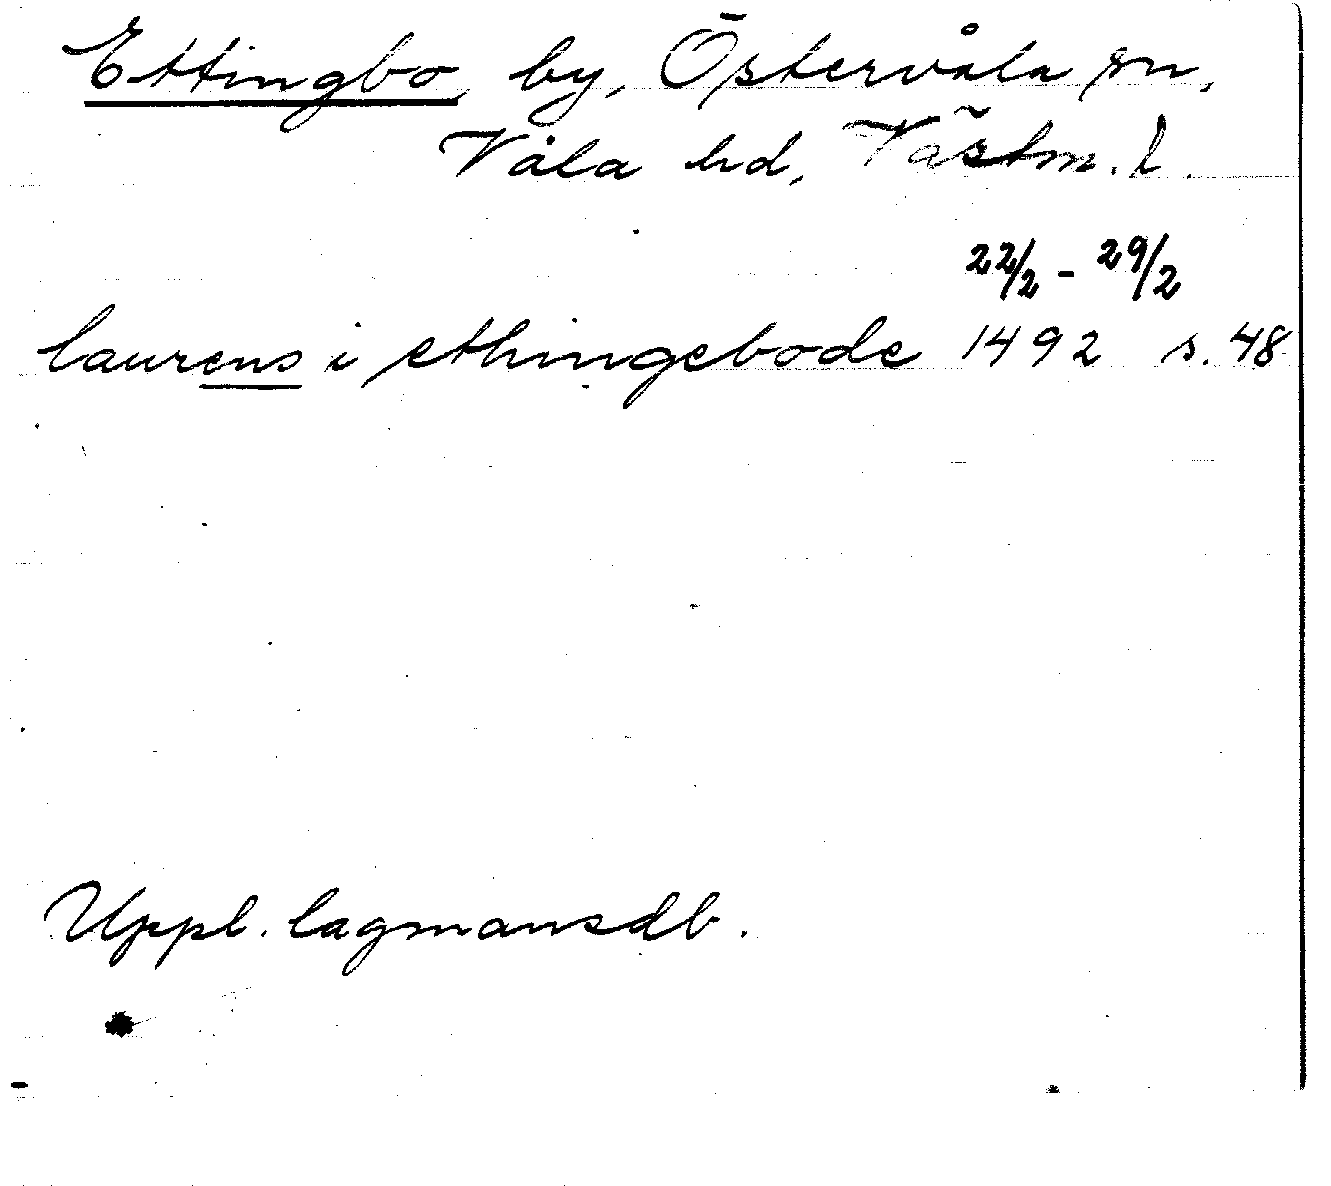 Ettingbo, by, Östervåla sn,
Våla hd, Västm. l.
22/2 - 29/2
laurens i ethingebode 1492 s. 48
Uppl. lagmansdb.